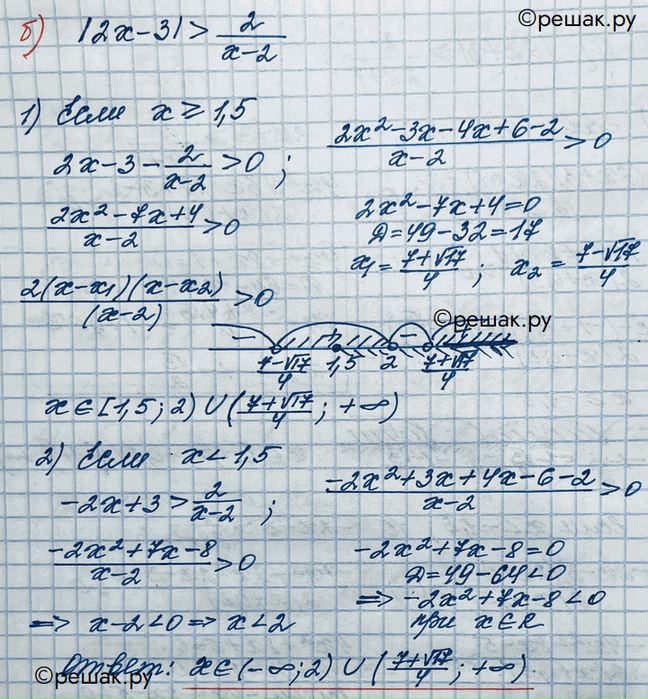 ©решак.ру
б) |2x-3| > 2/(x-2)
1) Если x ≥ 1,5
2x-3 - 2/(x-2) > 0 ;
(2x²-3x-4x+6-2)/(x-2) > 0
(2x²-7x+4)/(x-2) > 0
2x²-7x+4=0
Д=49-32=17
x₁ = (7+√17)/4 ; x₂ = (7-√17)/4
2(x-x₁)(x-x₂)/(x-2) > 0
©решак.ру
- + - +
(7-√17)/4 1,5 2 (7+√17)/4
x ∈ [1,5; 2) ∪ ((7+√17)/4 ; +∞)
2) Если x < 1,5
-2x+3 > 2/(x-2) ;
(-2x²+3x+4x-6-2)/(x-2) > 0
(-2x²+7x-8)/(x-2) > 0
-2x²+7x-8=0
Д=49-64<0
⇒ -2x²+7x-8<0
при x∈R
⇒ x-2<0 ⇒ x<2
Ответ: x∈(-∞;2) ∪ ((7+√17)/4 ; +∞).
©решак.ру